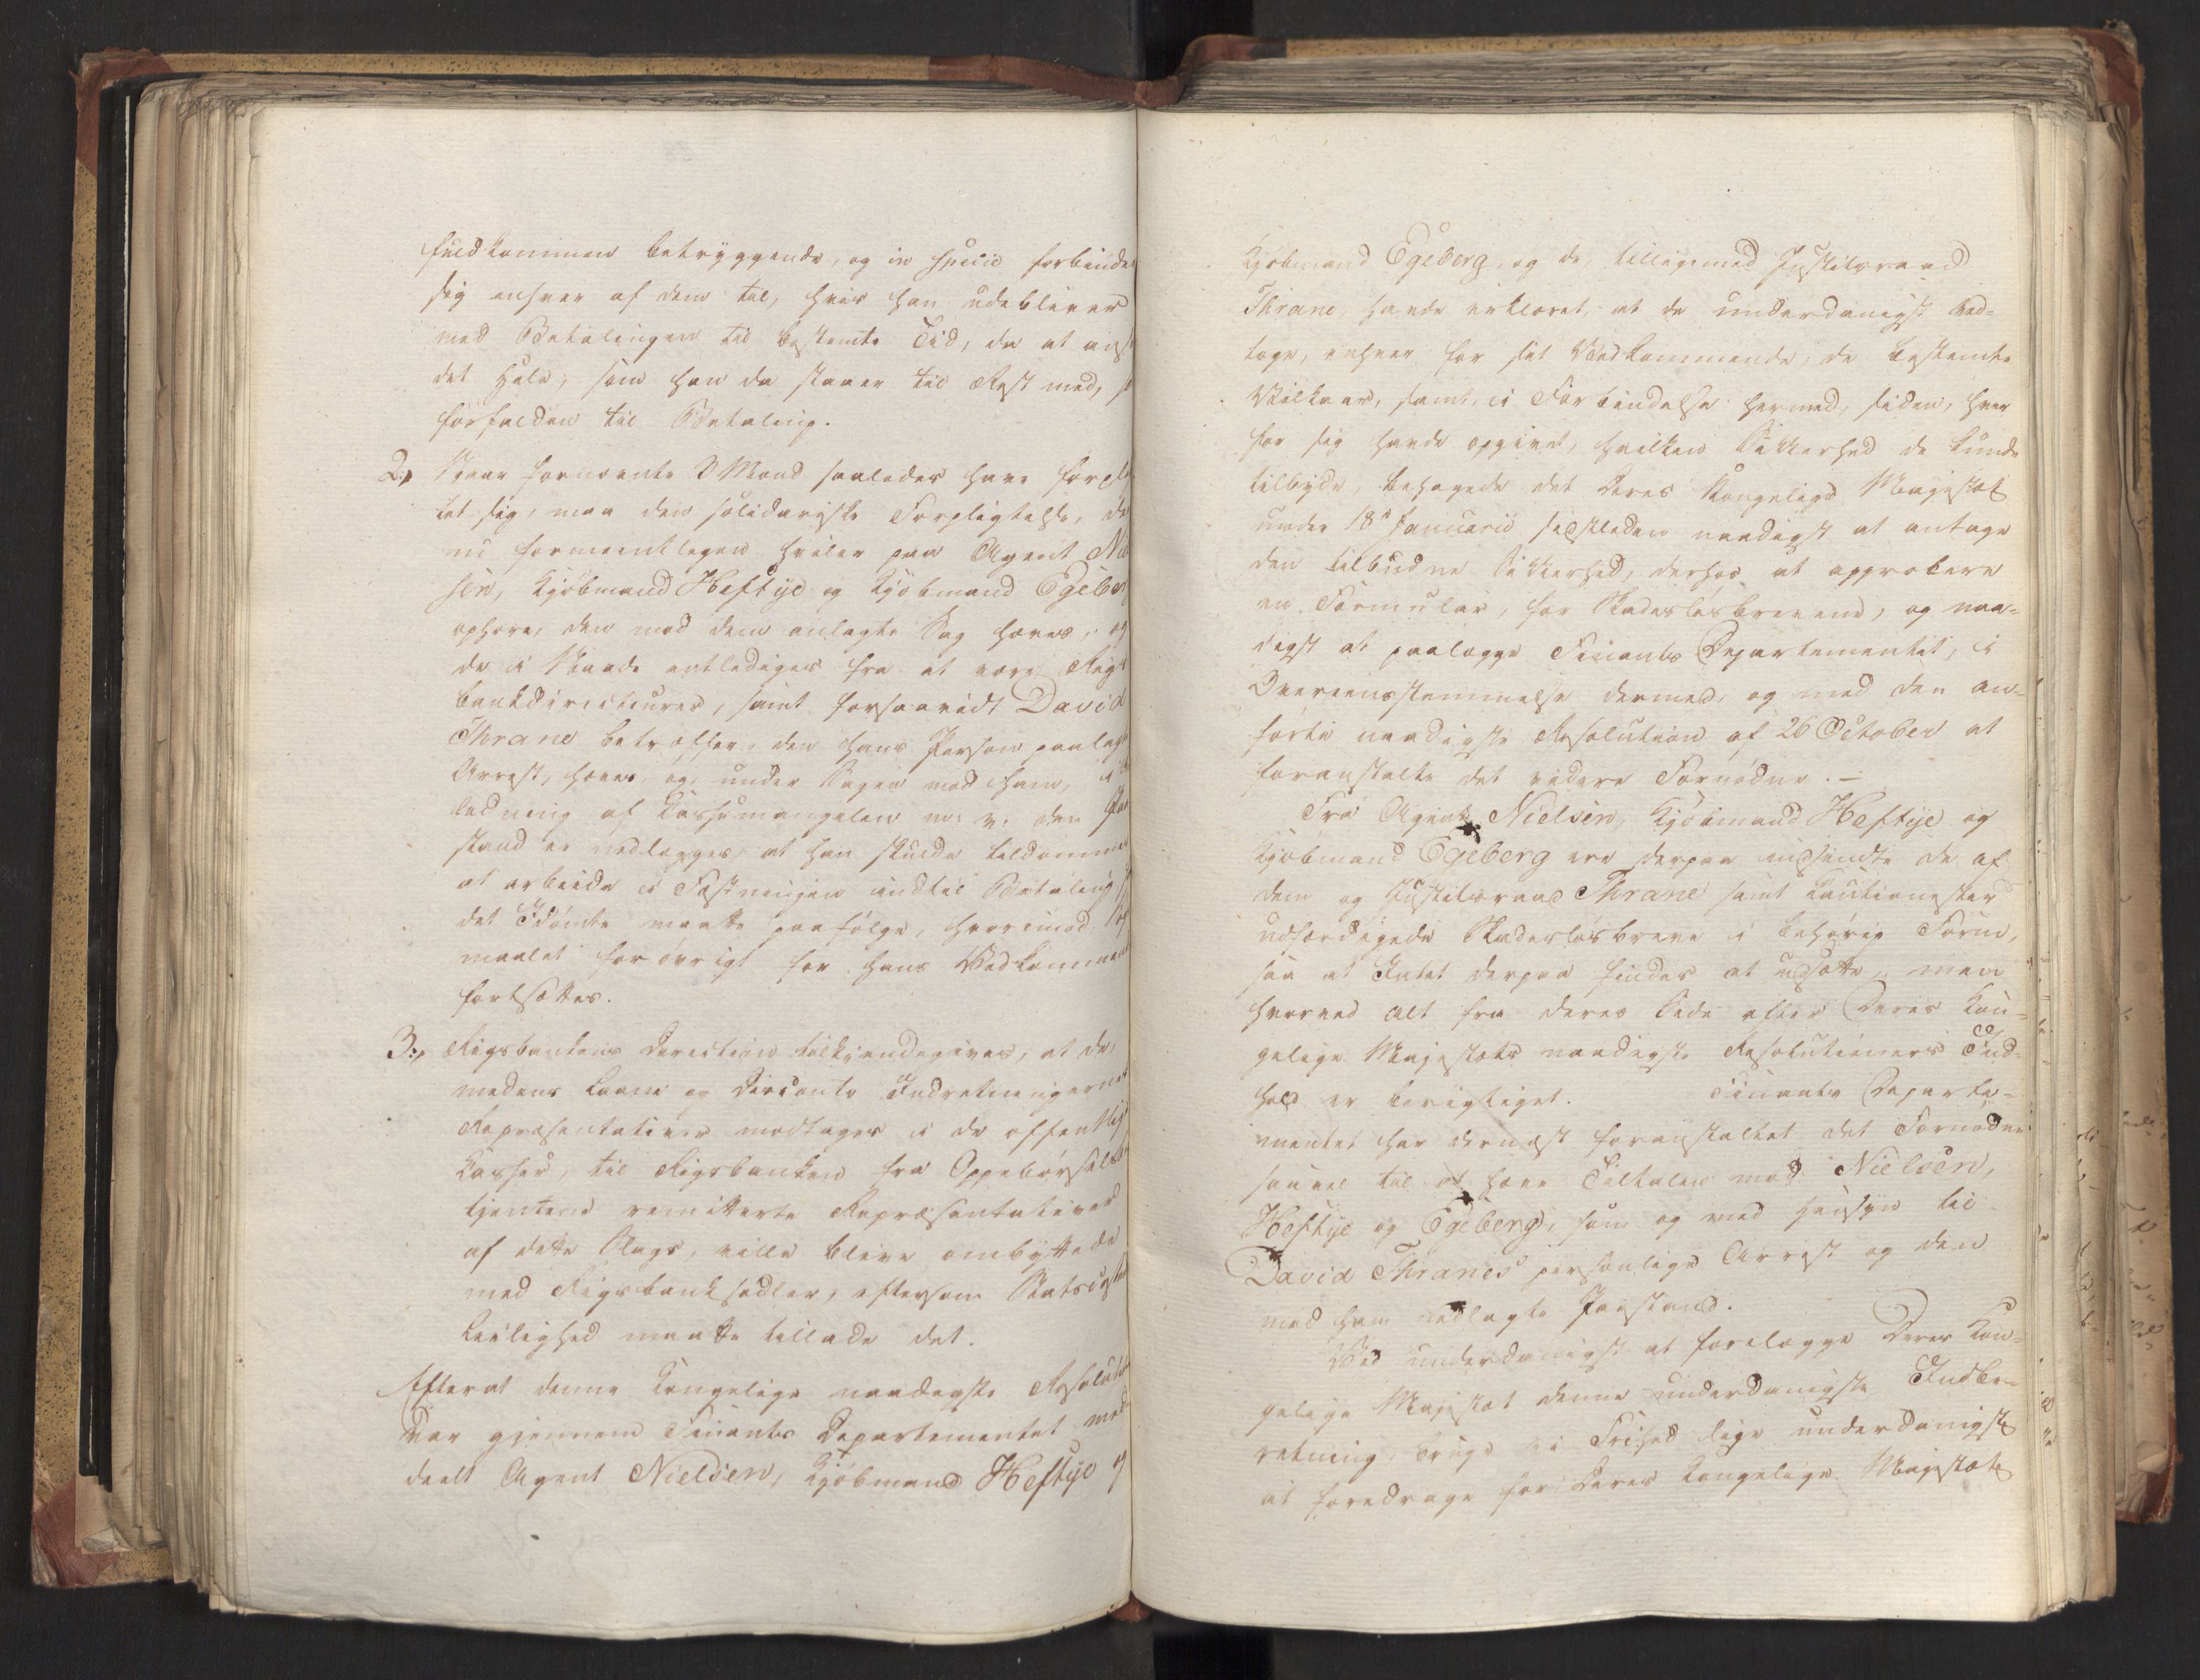 fuldkommen betryggende, og in specie forbinder
sig enhver af dem til, hvis han udebliver
med Betalingen til bestemte Tid, da at ansee
det Hele, som han da staaer til Rest med,
forfalden til Betaling.
2, Naar fornævnte 3 Mænd saaledes have forplig
tet sig, maa den solidariske Forpligtelse, der
nu formeentligen hviler paa Agent Niel
sen, Kjöbmand Heftye og Kjöbmand Egeberg
ophøre, den mod dem anlagte Sag hæves, og
de i Naade entlediges fra at være Rigs
bankdirecteurer, samt forsaavidt David
Thrane betræffer, den hans Person paalagte
Arrest, hæves, og, under Sagen mod ham, i An
ledning af Kassemangelen m: v: den Paa
stand ei nedlægges, at han skulde tildømmes
at arbeide i Fæstningen indtil Betaling
det Idömte maatte paafölge, hvorimod Søgs
maalet forövrigt for hans Vedkommende
fortsættes.
3:, Rigsbankens Direction tilkjendegives, at de,
medens Laane og Disconto Indretningernes
Repræsentativer modtages i de offentlige
Kasser, til Rigsbanken fra Oppebörsels
tjenterne remitterte Repræsentativer
af dette Slags, ville blive ombyttede
med Rigsbanksedler, eftersom Statscassens
Leilighed maatte tillade det.
Efterat denne Kongelige naadigste Resolution
var gjennem Finants Departementet med
deelt Agent Nielsen, Kjöbmand Heftye og
Kjöbmand Egeberg, og de, tilligemed Justitsraad
Thrane, havde erklæret, at de underdanigst ved-
toge, enhver for sit Vedkommende, de bestemte
Vilkaar, samt, i Forbindelse hermed, siden, hver
for sig havde opgivet, hvilken Sikkerhed de kunde
tilbyde, behagede det Deres Kongelige Majestæt
under 18de Januarii sidstleden naadigst at antage
den tilbudne Sikkerhed, derhos at approbere
en Formular, for Skadeslösbrevene, og naa-
digst at paalægge Finants Departementet, i
Overeensstemmelse dermed, og med den an-
förte naadigste Resolution af 26 October at
foranstalte det videre Fornödne. —
Fra Agent Nielsen, Kjöbmand Heftye og
Kjöbmand Egeberg ere derpaa indsendte de af
dem og Justitsraad Thrane samt Cautionister
udfærdigede Skadeslösbreve i behörig Form,
saa at Intet derpaa findes at udsætte, men
hvorved Alt fra deres Side efter Deres Kon-
gelige Majestæts naadigste Resolutioners Ind-
hold er berigtiget. Finants Departe-
mentet har dernæst foranstaltet det Fornödne
saavel til at hæve Tiltalen mod Nielsen,
Heftye og Egeberg, som og med Hensyn til
David Thranes personlige Arrest og den
mod ham nedlagte Paastand.
Ved underdanigst at forelægge Deres Kon-
gelige Majestæt denne underdanigste Indbe-
retning, bruge vi Frihed lige underdanigst
at foredrage for Deres Kongelige Majestæt